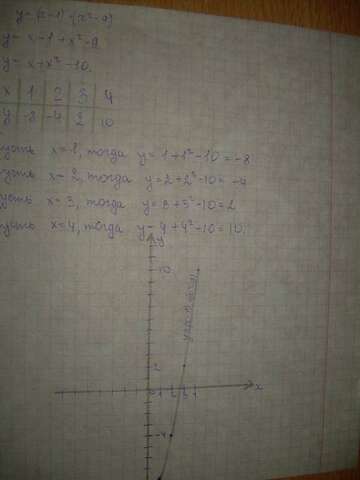 y=(x-1)+(x²-9)
y= x-1+x²-9
y= x+x²-10.
x 1 2 3 4
y -8 -4 2 10
усть x=1, тогда y=1+1²-10=-8
усть x=2, тогда y=2+2²-10=-4
усть x=3, тогда y=3+3²-10=2
усть x=4, тогда y=4+4²-10=10.
y
10
2
0 1 2 3 4 x
-4